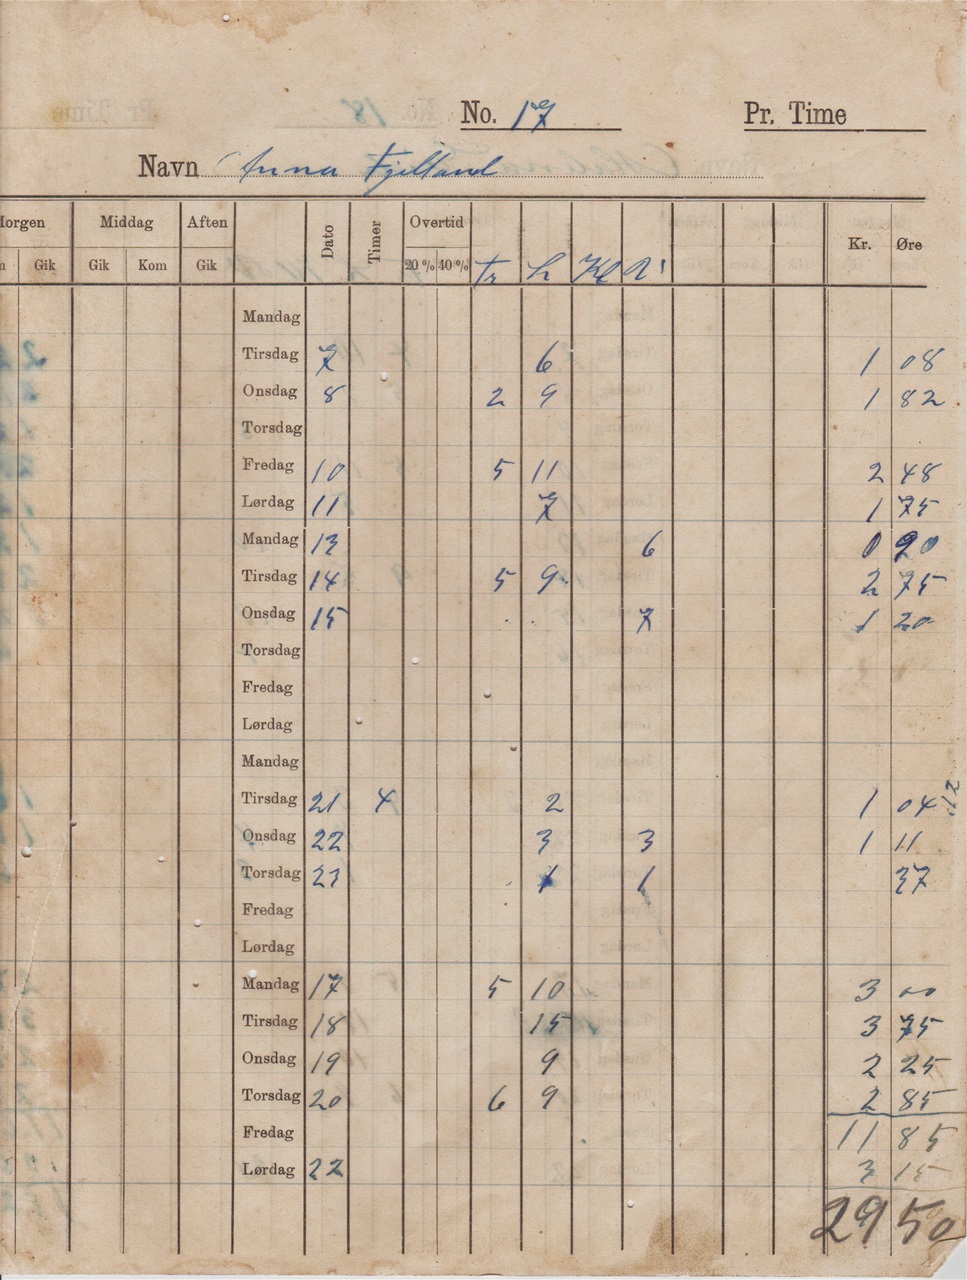 No. 17 Pr. Time
Navn Anna Fjelland
Morgen Middag Aften Dato Timer Overtid Kr. Øre
Gik Gik Kom Gik 20% 40% Tr h Kl
Mandag
Tirsdag 7 6 1 08
Onsdag 8 2 9 1 82
Torsdag
Fredag 10 5 11 2 48
Lørdag 11 7 1 75
Mandag 13 6 0 90
Tirsdag 14 5 9 2 75
Onsdag 15 7 1 20
Torsdag
Fredag
Lørdag
Mandag
Tirsdag 21 4 2 1 04
Onsdag 22 3 3 1 11
Torsdag 23 1 1 37
Fredag
Lørdag
Mandag 17 5 10 3 00
Tirsdag 18 15 3 75
Onsdag 19 9 2 25
Torsdag 20 6 9 2 85
Fredag 11 85
Lørdag 22 3 15
29 50